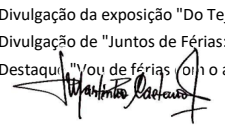 Divulgação da exposição "Do Te
Divulgação de "Juntos de Férias:
Destaque "Vou de férias com o a
Martinho Caetano